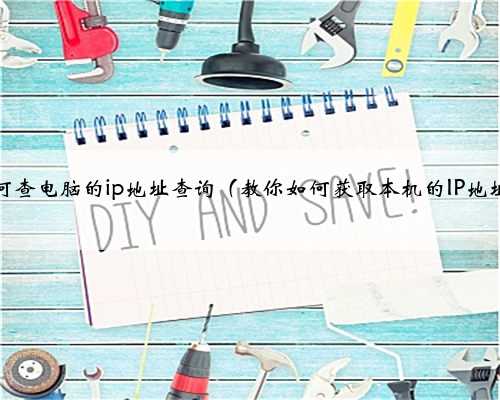 可查电脑的ip地址查询（教你如何获取本机的IP地址
DIY AND SAVE!